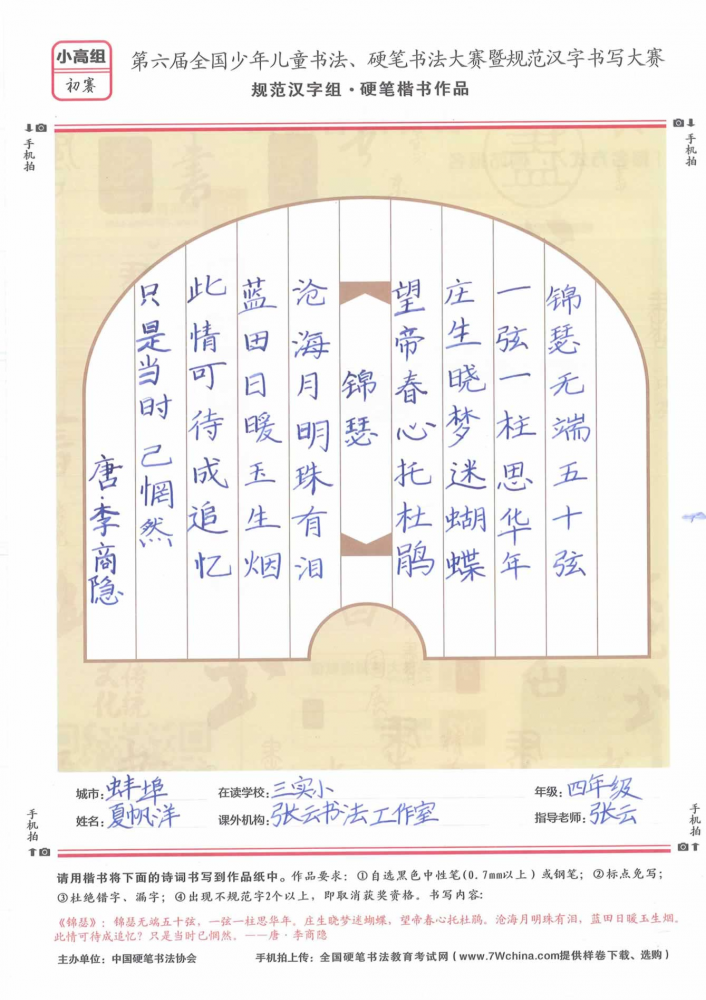 小高组
初赛
第六届全国少年儿童书法、硬笔书法大赛暨规范汉字书写大赛
规范汉字组·硬笔楷书作品
手机拍
手机拍
锦瑟无端五十弦
一弦一柱思华年
庄生晓梦迷蝴蝶
望帝春心托杜鹃
锦瑟
沧海月明珠有泪
蓝田日暖玉生烟
此情可待成追忆
只是当时己惘然
唐·李商隐
城市:蚌埠
在读学校:三实小
年级:四年级
姓名:夏帆洋
课外机构:张云书法工作室
指导老师:张云
手机拍
手机拍
请用楷书将下面的诗词书写到作品纸中。作品要求:①自选黑色中性笔(0.7mm以上)或钢笔;②标点免写;
③杜绝错字、漏字;④出现不规范字2个以上,即取消获奖资格。书写内容:
《锦瑟》:锦瑟无端五十弦,一弦一柱思华年。庄生晓梦迷蝴蝶,望帝春心托杜鹃。沧海月明珠有泪,蓝田日暖玉生烟。
此情可待成追忆?只是当时已惘然。——唐·李商隐
主办单位:中国硬笔书法协会
手机拍上传:全国硬笔书法教育考试网(www.7Wchina.com提供样卷下载、选购)